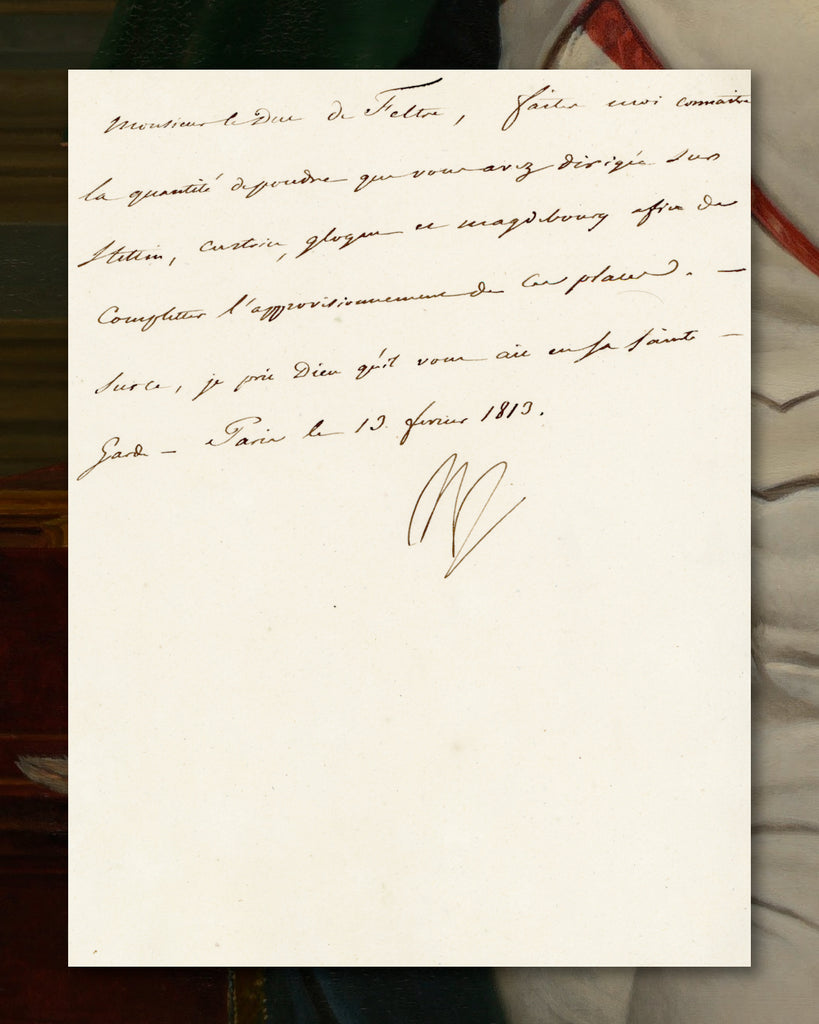 Monsieur le Duc de Feltre, faites moi connaitre
la quantité de poudre que vous avez dirigée sur
Stettin, custrin, glogau et magdebourg afin de
Completter l'approvisionnement de Ces places. —
Sur ce, je prie Dieu qu'il vous ait en sa Sainte —
Garde — Paris le 13 fevrier 1813.